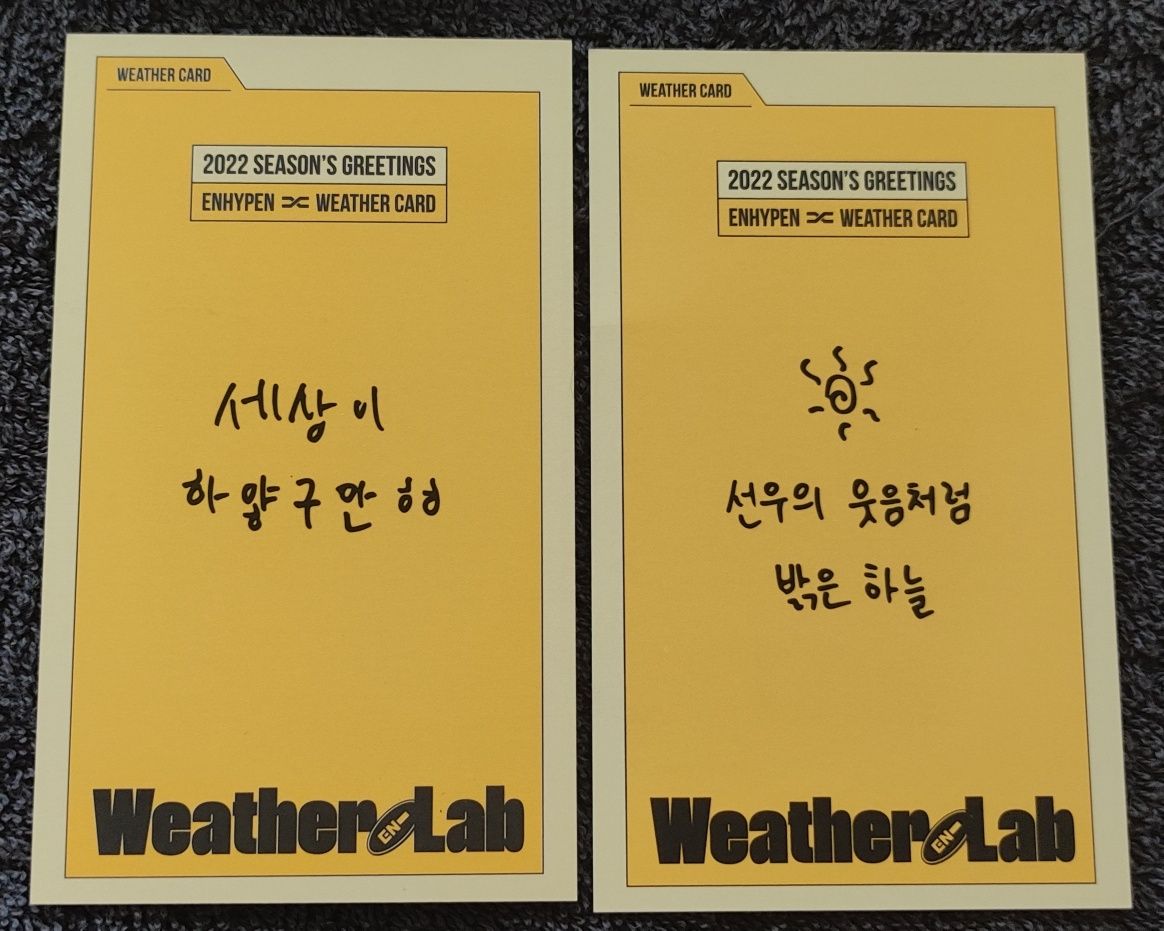 WEATHER CARD
2022 SEASON'S GREETINGS
ENHYPEN WEATHER CARD
세상이
하얗구만 형
Weather EN- Lab
WEATHER CARD
2022 SEASON'S GREETINGS
ENHYPEN WEATHER CARD
선우의 웃음처럼
밝은 하늘
Weather EN- Lab